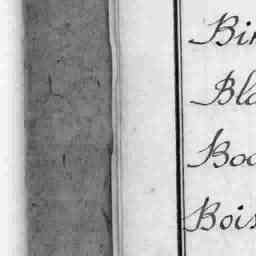 Bir
Bla
Boc
Bois